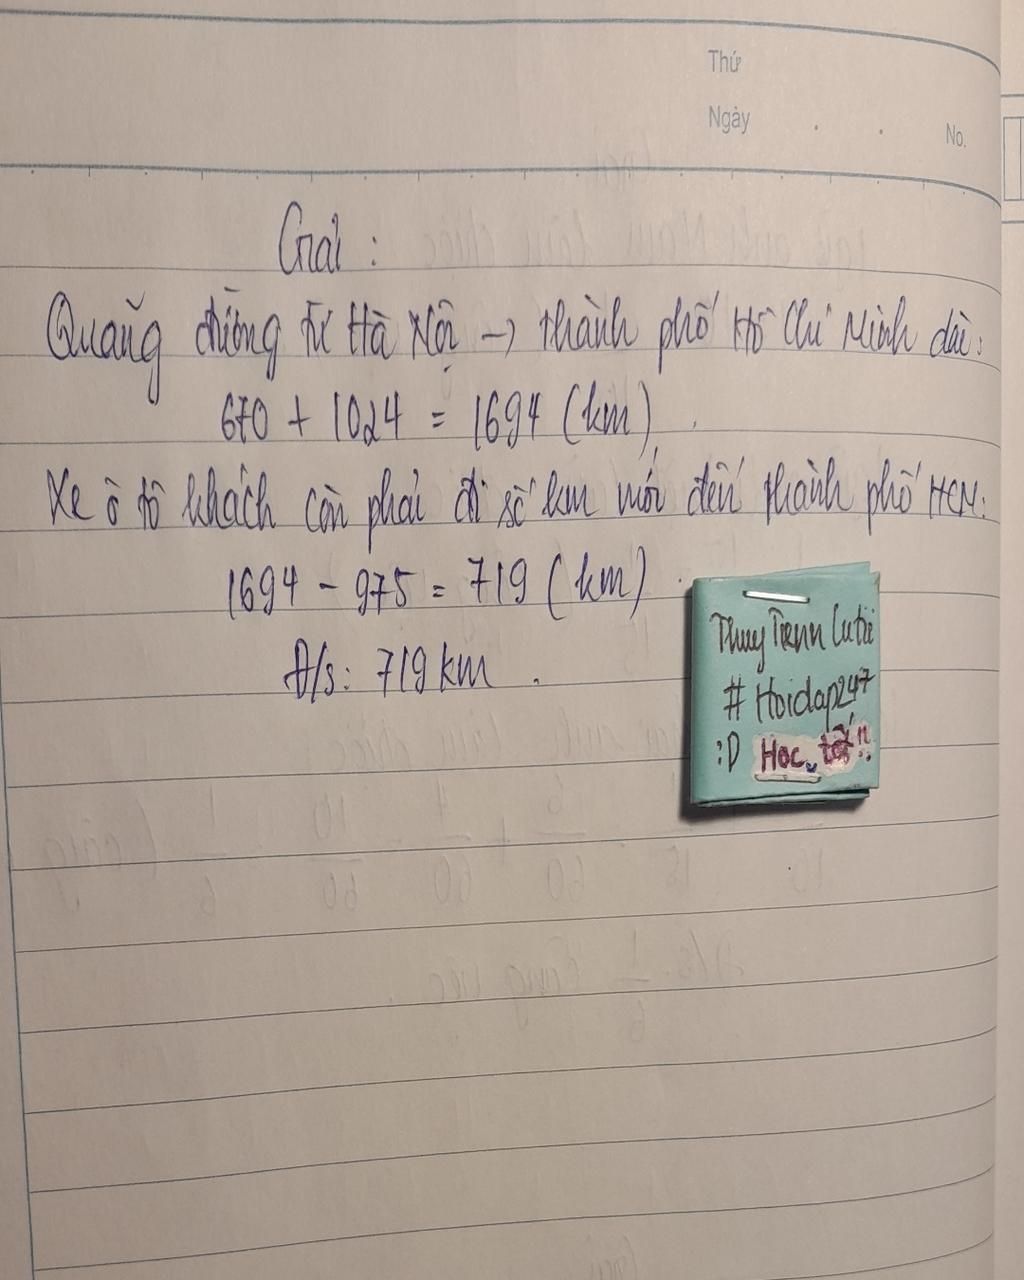 Thứ
Ngày . . No.
Giải :
Quãng đường từ Hà Nội → thành phố Hồ Chí Minh dài:
670 + 1024 = 1694 (km)
Xe ô tô khách còn phải đi số km mới đến thành phố HCM:
1694 - 975 = 719 (km)
Đ/s: 719 km .
Thuy Tienn Cutii
# Hoidap247
:D Học tốt!!